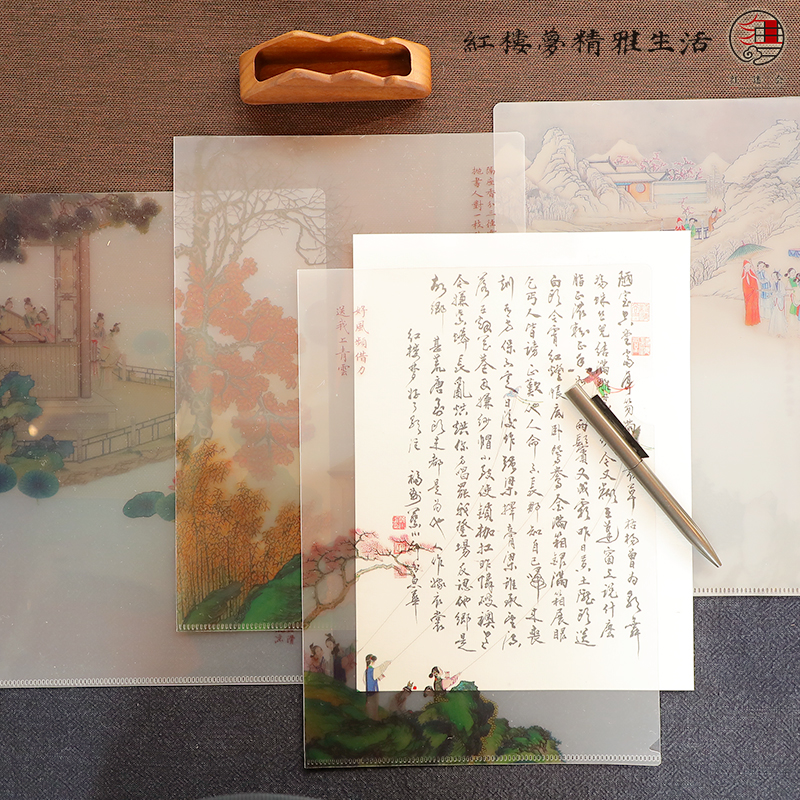 紅樓夢精雅生活
隔座香分三徑
拋書人對一枝
好風頻借力
送我上青雲
陋室空堂當年笏衰草枯楊曾為歌舞
場蛛絲兒結滿今又糊在蓬窗上說什麼
脂正濃粉正香兩鬢又成霜昨日黃土隴頭送
白骨今宵紅燈帳底臥鴛鴦金滿箱銀滿箱展眼
乞丐人皆謗正歎他人命不長那知自己歸來喪
訓有方保不定日後作強梁擇膏粱誰承望流
落在煙花巷因嫌紗帽小致使鎖枷扛昨憐破襖寒
今嫌紫蟒長亂烘烘你方唱罷我登場反認他鄉是
故鄉甚荒唐到頭來都是為他人作嫁衣裳
紅樓夢好了歌注